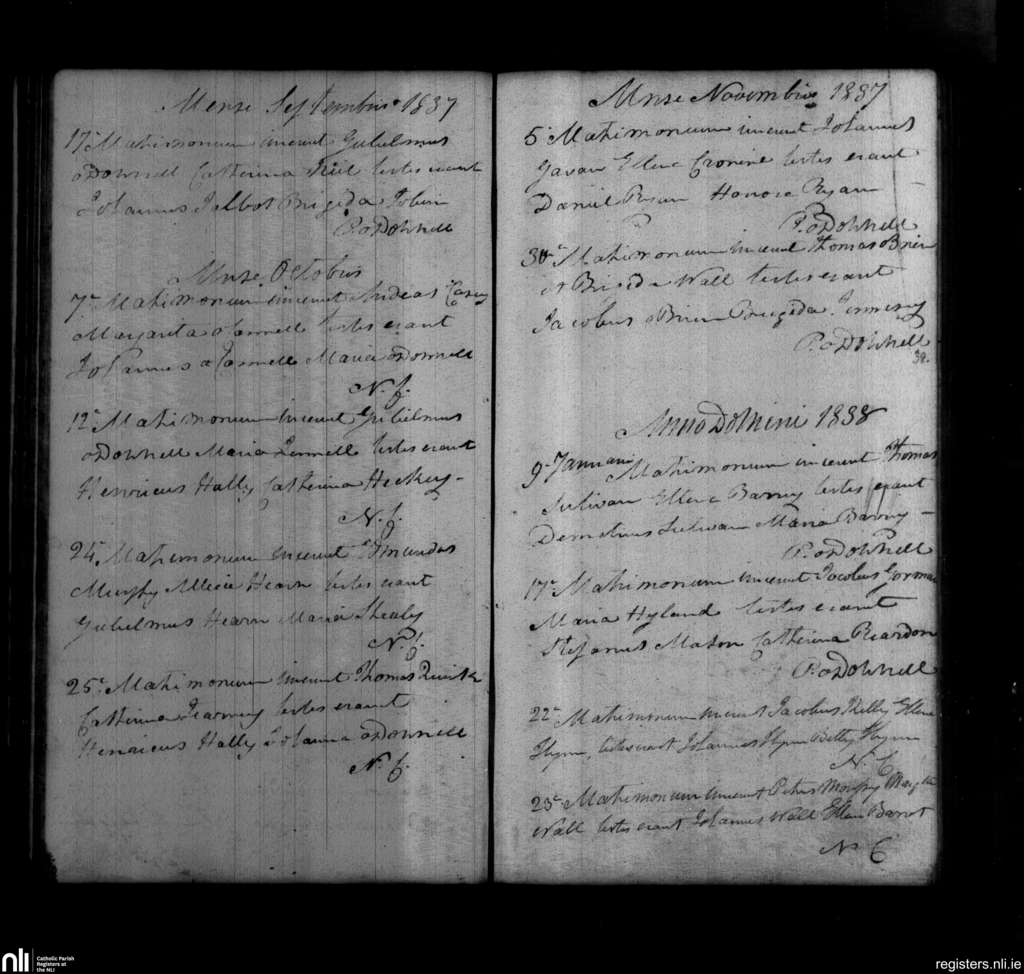 Mense Septembris 1837
17. Matrimonium inierunt Gulielmus
oDonnell Catherina Kiel testes erant
Johannes Talbot Brigida Tobin
P. oDonnell
Mense Octobris
7. Matrimonium inierunt Andreas Casey
Margarita oConnell testes erant
Johannes oConnell Maria oDonnell
N. C.
12. Matrimonium inierunt Gulielmus
oDonnell Maria testes erant
Henricus Hally Catherina Hickey
N. C.
24. Matrimonium inierunt Edmundus
Murphy Allicia Hearn testes erant
Gulielmus Hearn Maria Shealy
N. C.
25. Matrimonium inierunt Thomas Quirk
Catherina testes erant
Henricus Hally Johanna oDonnell
N. C.
Mense Novembris 1837
5. Matrimonium inierunt Johannes
Gavan Ellena Cronine testes erant
Daniel Ryan Honora Ryan
P. oDonnell
30. Matrimonium inierunt Thomas Brien
et Brigida Wall testes erant
Jacobus oBrien Brigida
P. oDonnell
Anno Domini 1838
9. Januarii Matrimonium inierunt Thomas
Sulivan Ellena Barry testes erant
Demetrius Sulivan Maria Barry
P. oDonnell
17. Matrimonium inierunt Jacobus Gorman
Maria Hyland testes erant
Stefanus Mason Catherina Reardon
P. oDonnell
22. Matrimonium inierunt Jacobus Kelly Ellena
Flynn, testes erant Johannes Flynn Betty Flynn
N. C.
23. Matrimonium inierunt Petrus Morrissy
Wall testes erant Johannes Wall Ellena Barrot
N C
nli Catholic Parish
Registers at
the NLI
registers.nli.ie